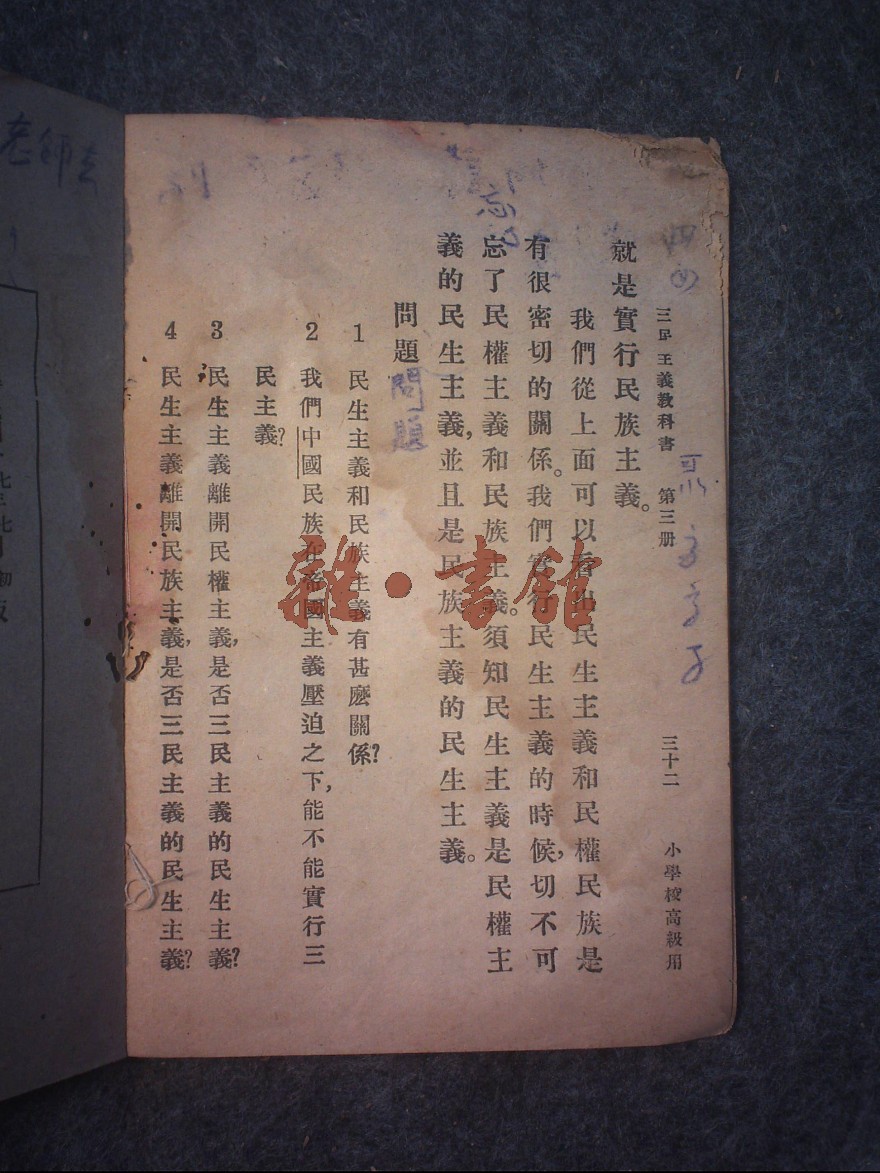 三民主義教科書 第三册 三十二 小學校高級用
就是實行民族主義。
我們從上面可以看出民生主義和民權民族是
有很密切的關係。我們實行民生主義的時候,切不可
忘了民權主義和民族主義。須知民生主義是民權主
義的民生主義,並且是民族主義的民生主義。
問題
問題
1 民生主義和民族主義有甚麽關係?
2 我們中國民族在帝國主義壓迫之下,能不能實行三
民主義?
3 民生主義離開民權主義,是否三民主義的民生主義?
4 民生主義離開民族主義,是否三民主義的民生主義?
雜·書館
老師